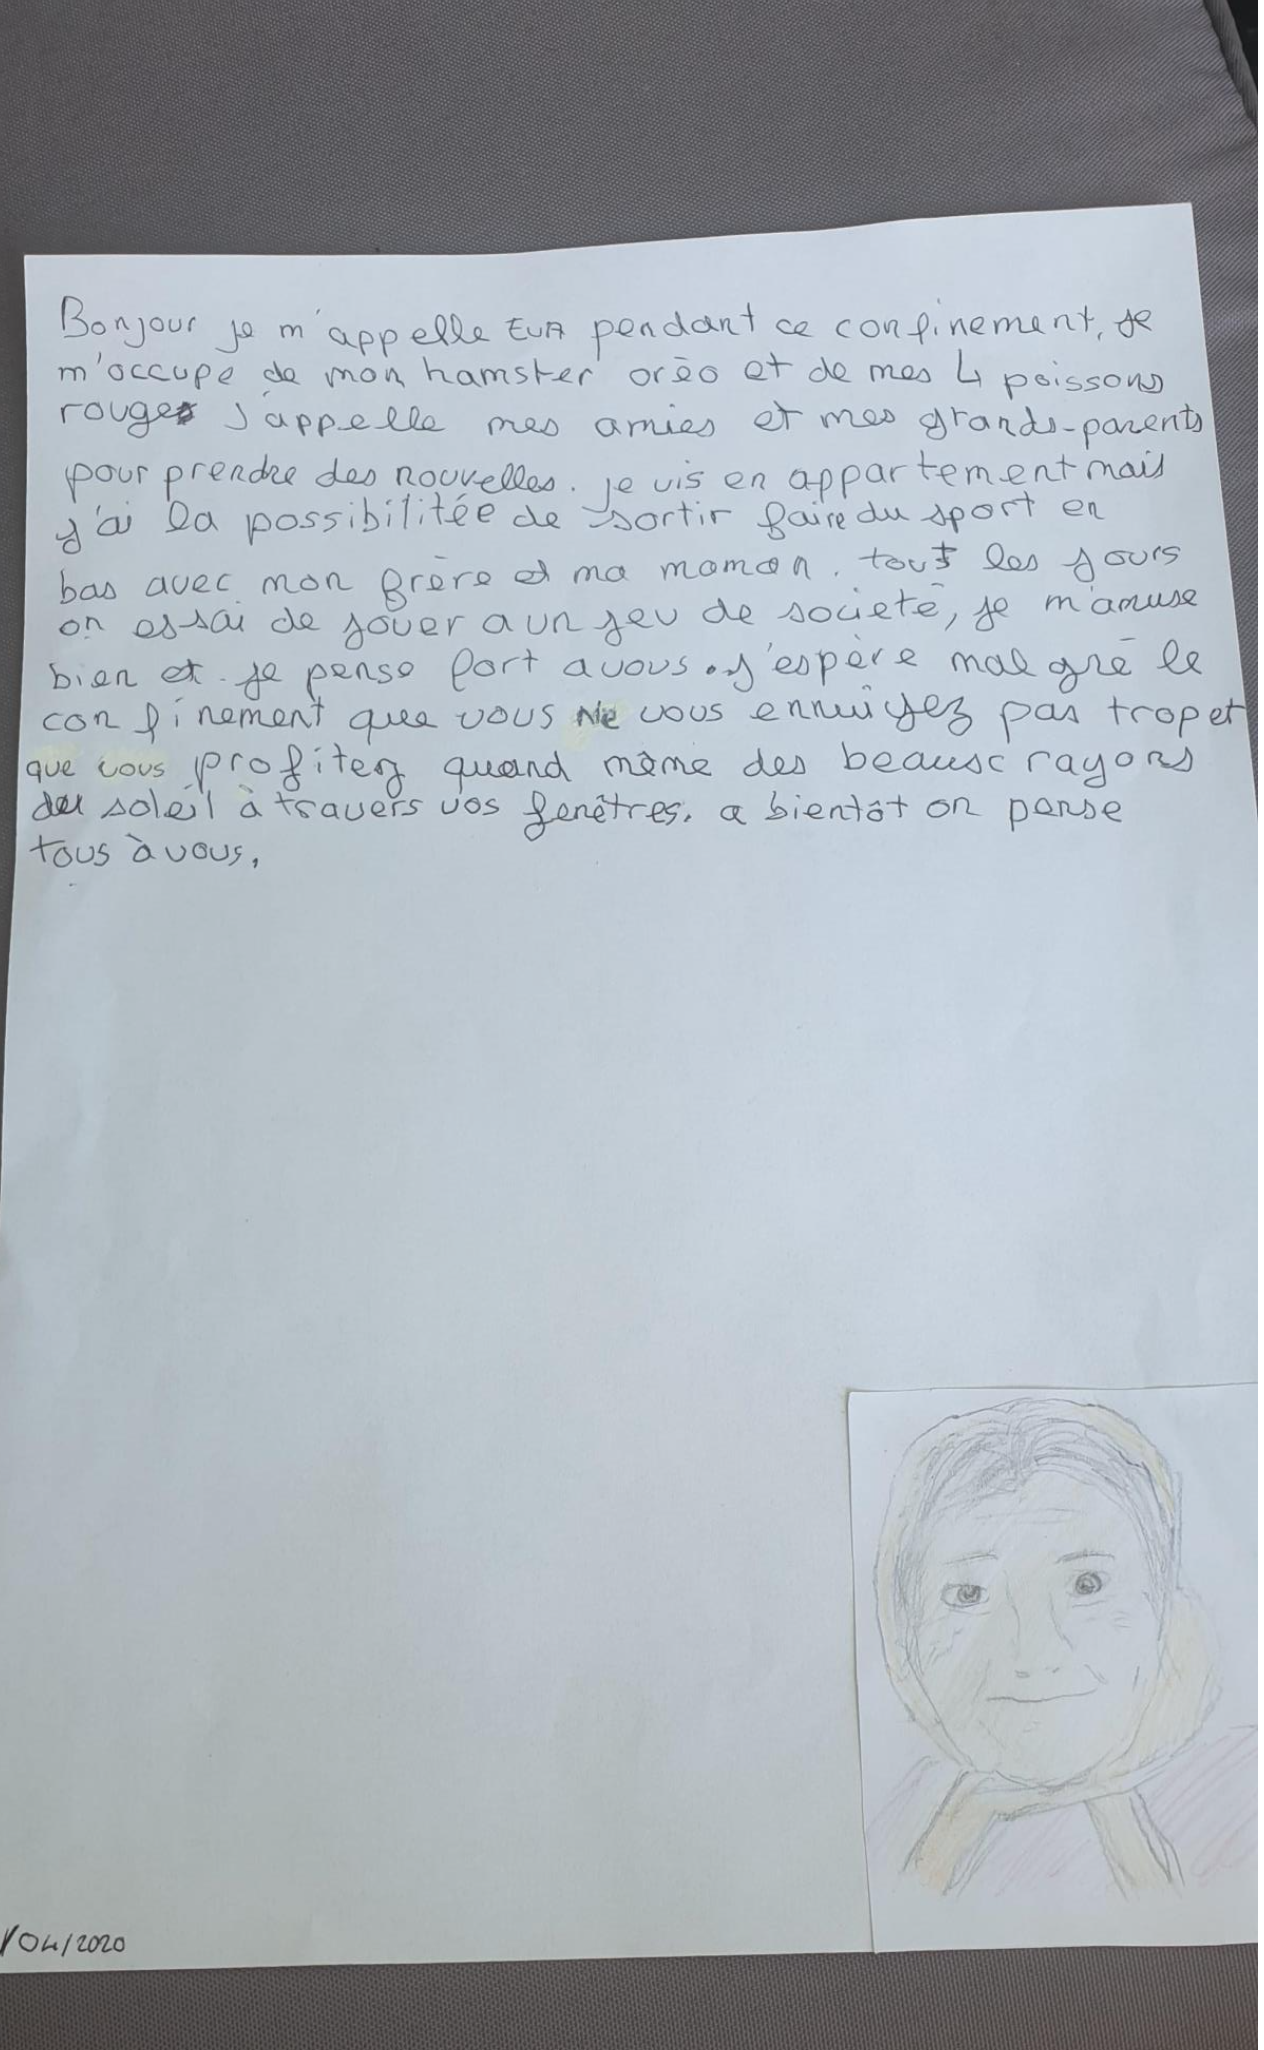 Bonjour je m'appelle EVA pendant ce confinement, je
m'occupe de mon hamster orèo et de mes 4 poissons
rouges J'appelle mes amies et mes grands-parents
pour prendre des nouvelles. je vis en appartement mais
j'ai la possibilitée de sortir faire du sport en
bas avec mon frère et ma maman. tout les jours
on essai de jouer a un jeu de societé, je m'amuse
bien et je pense fort a vous. j'espère malgré le
confinement que vous Ne vous ennuiyez pas trop et
que vous profitez quand même des beaux rayons
du soleil à travers vos fenêtres. a bientôt on pense
tous à vous.
/04/2020